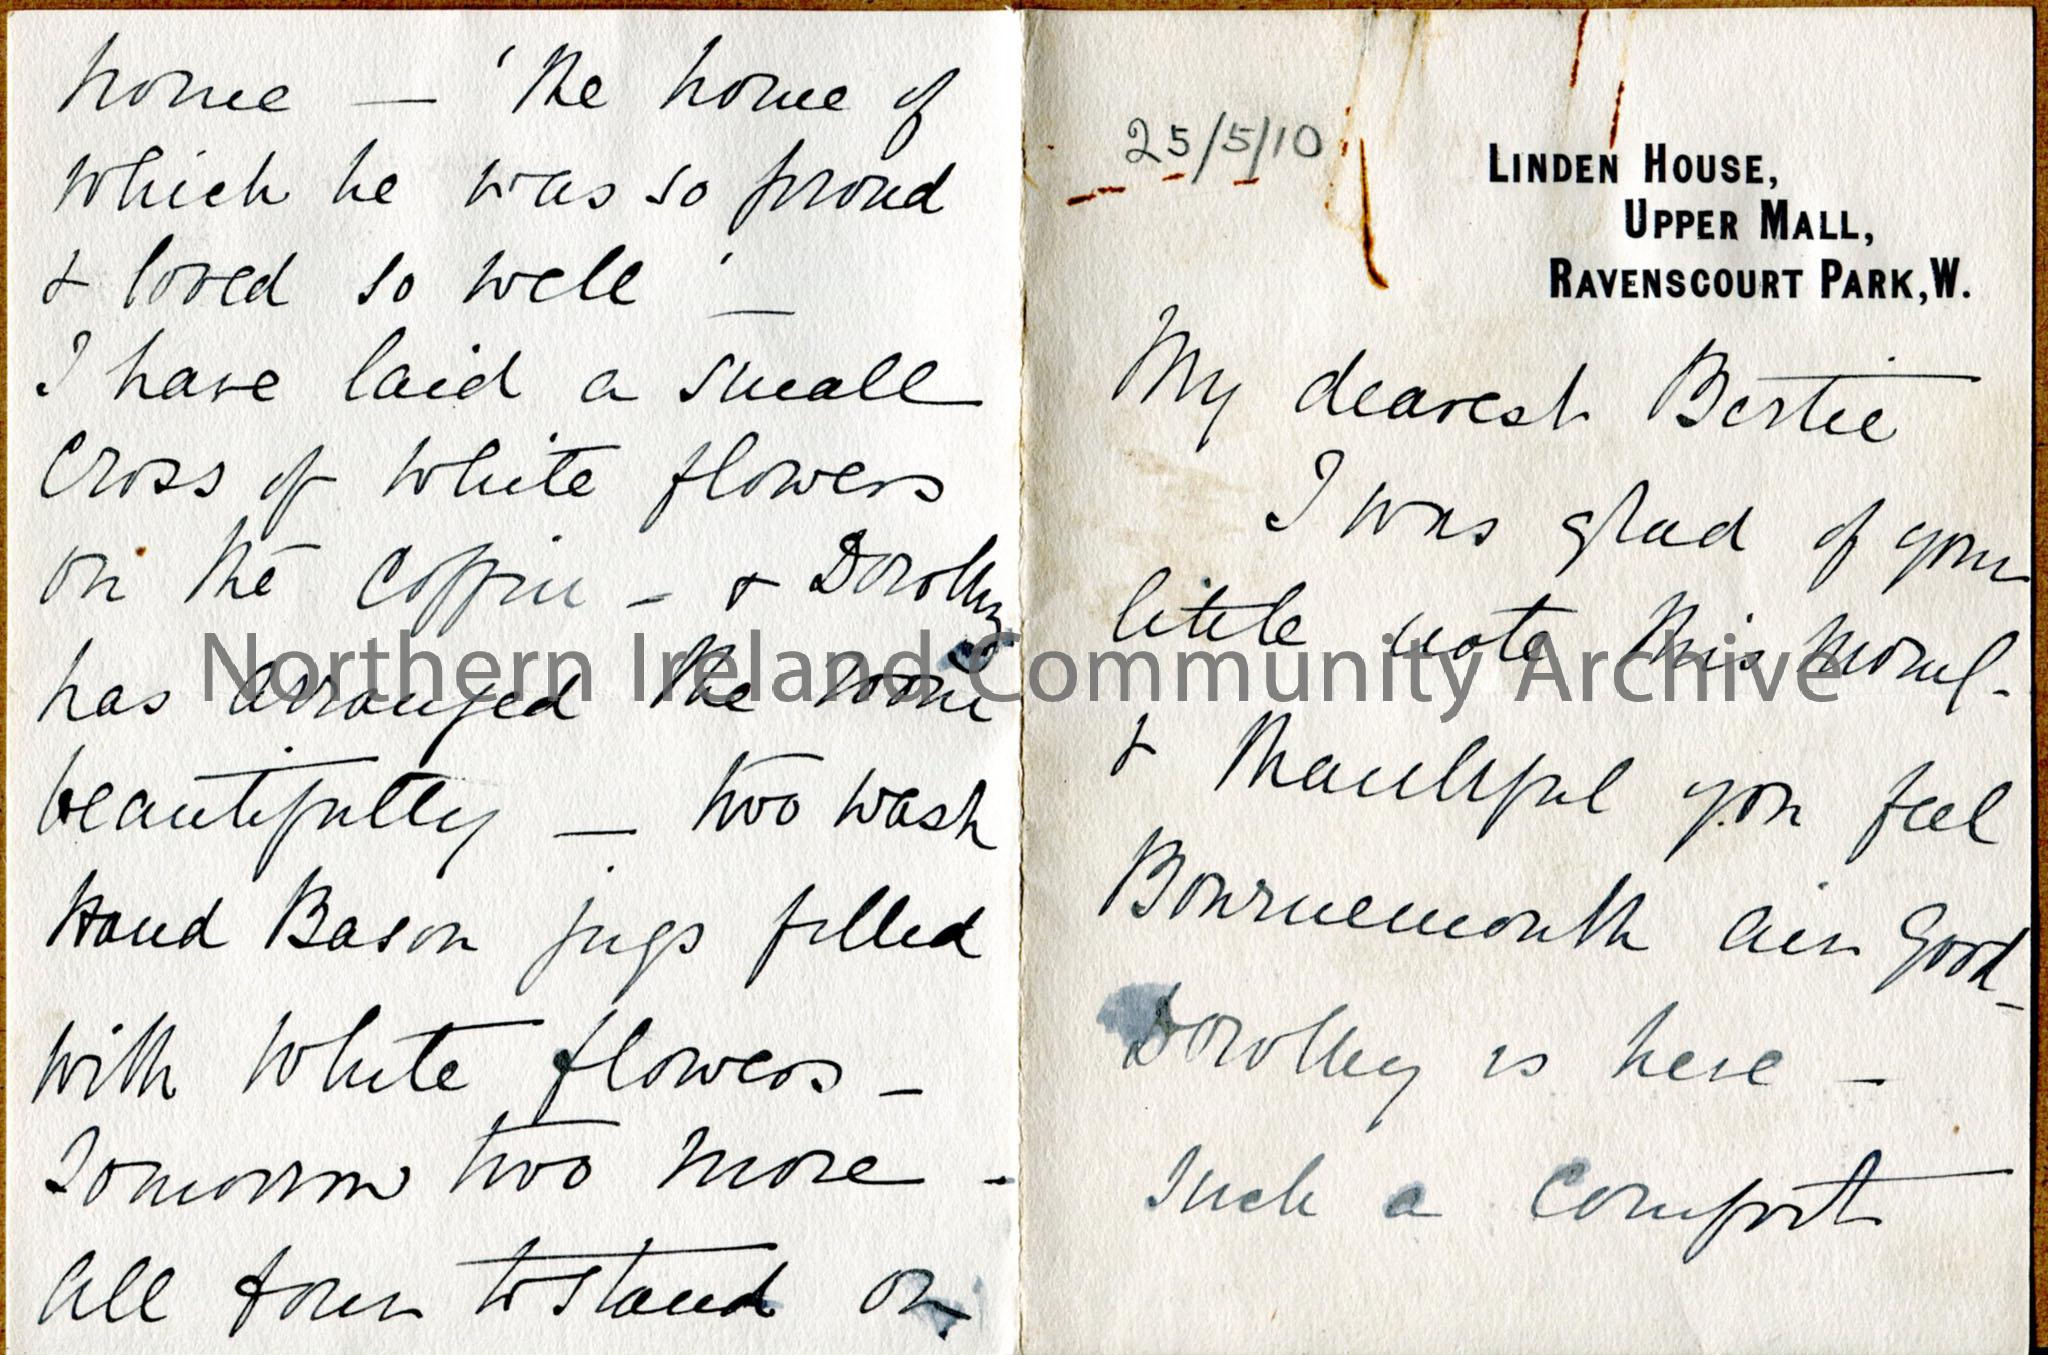 25/5/10
LINDEN HOUSE,
UPPER MALL,
RAVENSCOURT PARK, W.
My dearest Bertie
I was glad of your
little note this morng -
& thankful you feel
Bournemouth air good -
Dorothy is here -
Such a comfort
home — 'the home of
which he was so proud
& loved so well' —
I have laid a small
Cross of white flowers
on the coffin - & Dorothy
has arranged the room
beautifully — two wash
Hand Bason jugs filled
with white flowers -
Tomorrow two more -
All four to stand on
Northern Ireland Community Archive